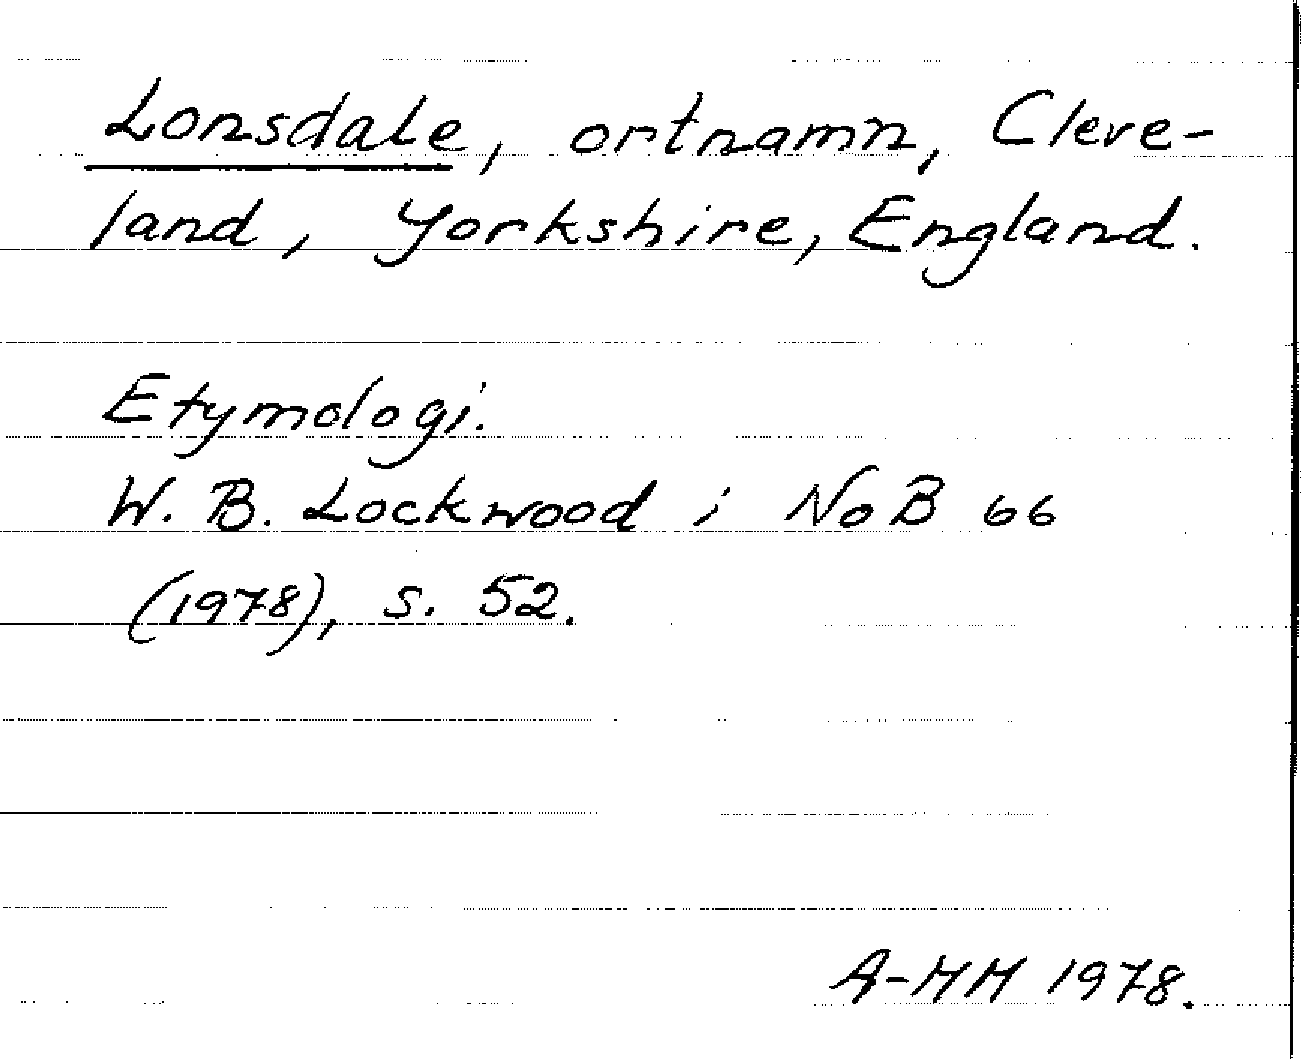 Lonsdale, ortnamn, Cleve-
land, Yorkshire, England.
Etymologi.
W. B. Lockwood i NoB 66
(1978), s. 52.
A-MM 1978.